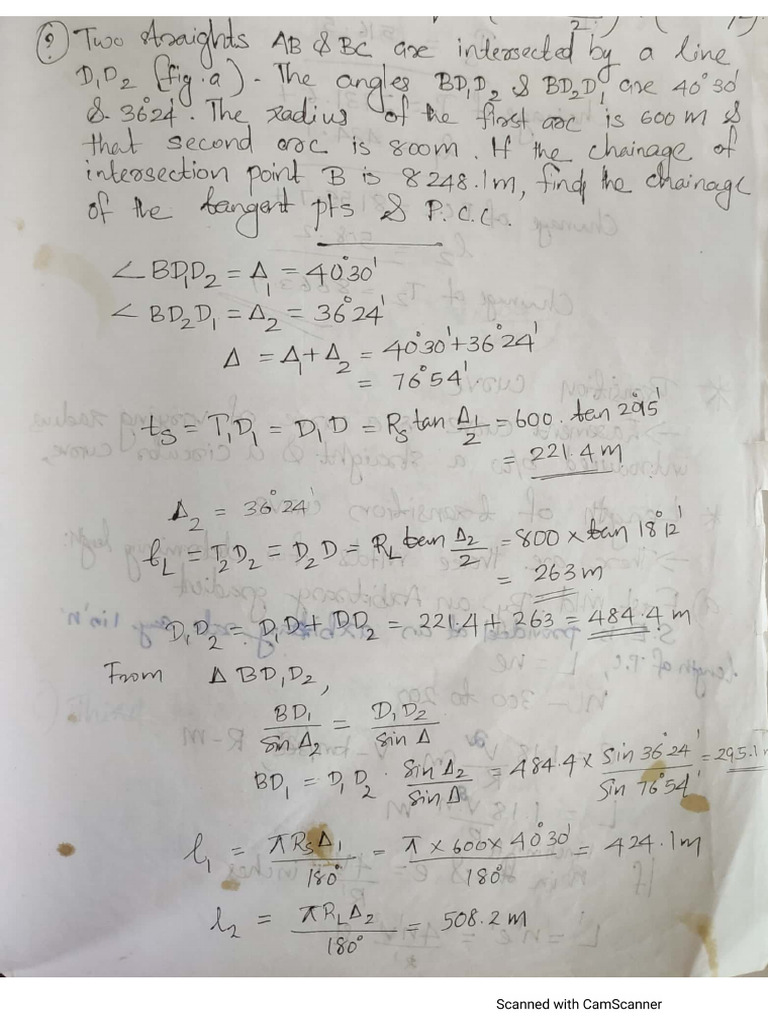 ? Two straights AB & BC are intersected by a line
D₁D₂ (fig.a) - The angles BD₁D₂ & BD₂D₁ are 40°30'
& 36°24'. The radius of the first arc is 600 m &
that second arc is 800m. If the chainage of
intersection point B is 8248.1m, find the chainage
of the tangent pts & P.C.C.
∠BD₁D₂ = Δ₁ = 40°30'
∠BD₂D₁ = Δ₂ = 36°24'
Δ = Δ₁ + Δ₂ = 40°30' + 36°24'
= 76°54'
tₛ = T₁D₁ = D₁D = Rₛ tan Δ₁/2 = 600 . tan 20°15'
= 221.4 m
Δ₂ = 36°24'
t_L = T₂D₂ = D₂D = R_L tan Δ₂/2 = 800 × tan 18°12'
= 263 m
D₁D₂ = D₁D + DD₂ = 221.4 + 263 = 484.4 m
From Δ BD₁D₂,
BD₁/sin Δ₂ = D₁D₂/sin Δ
BD₁ = D₁D₂ . sin Δ₂/sin Δ = 484.4 × sin 36°24'/sin 76°54' = 295.1
l₁ = πRₛΔ₁/180° = π × 600 × 40°30'/180° = 424.1m
l₂ = πR_LΔ₂/180° = 508.2 m
Scanned with CamScanner